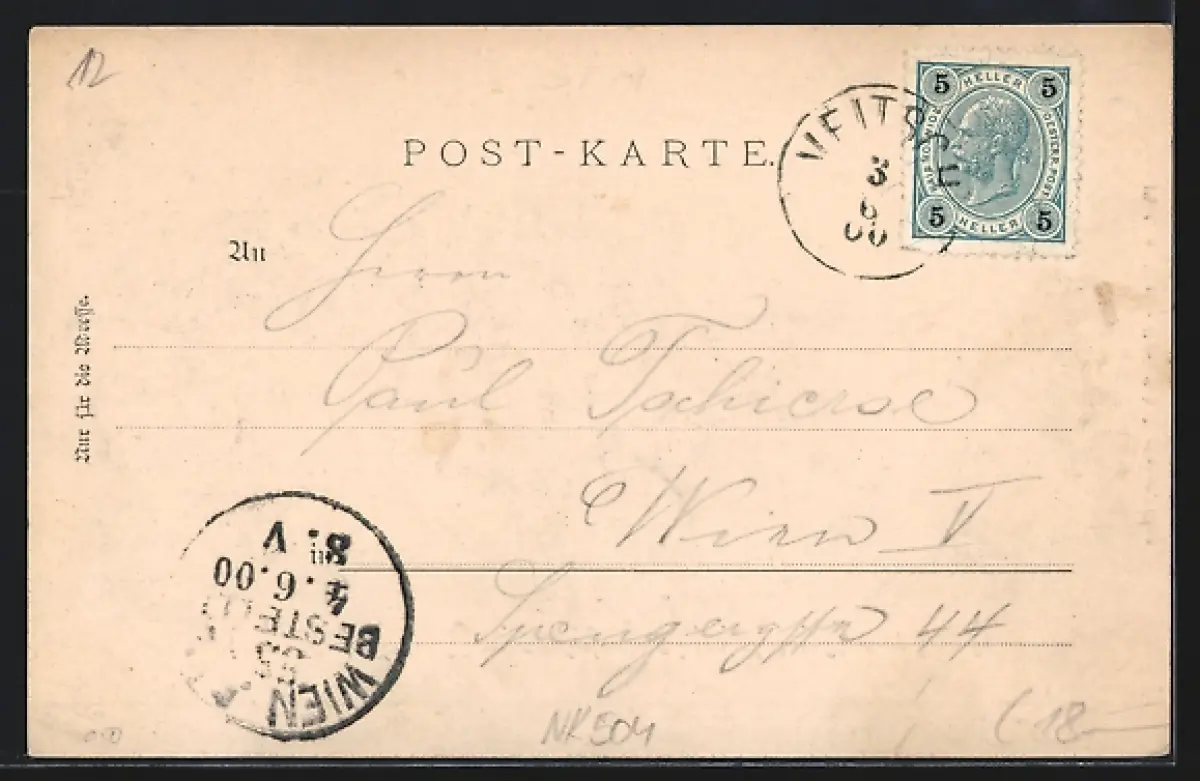 12
POST-KARTE.
VEITSCH
3
6
00
5 HELLER 5
5 HELLER 5
An Herrn
Paul
Wien V
44
Nur für die Adresse.
8. V
4.6.00
BESTELLT
WIEN
NK504
18